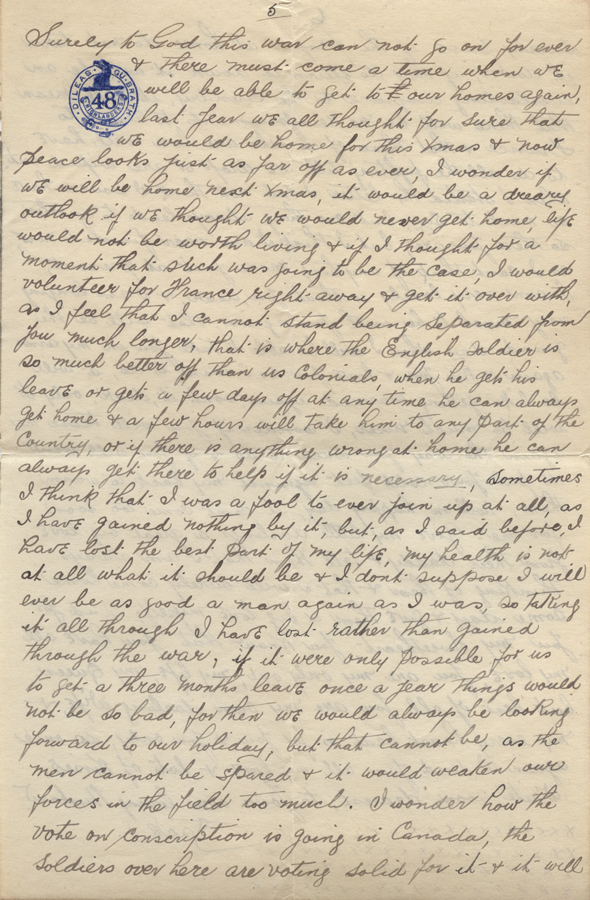 5
Surely to God this war can not go on for ever
& there must come a time when we
will be able to get to our homes again,
last year we all thought for sure that
we would be home for this Xmas & now
peace looks just as far off as ever, I wonder if
we will be home next Xmas, it would be a dreary
outlook if we thought we would never get home, life
would not be worth living & if I thought for a
moment that such was going to be the case, I would
volunteer for France right away & get it over with,
as I feel that I cannot stand being separated from
you much longer, that is where the English Soldier is
so much better off than us Colonials, when he gets his
leave or gets a few days off at any time he can always
get home & a few hours will take him to any part of the
Country, or if there is anything wrong at home he can
always get there to help if it is necessary, sometimes
I think that I was a fool to ever join up at all, as
I have gained nothing by it, but, as I said before, I
have lost the best part of my life, my health is not
at all what it should be & I dont suppose I will
ever be as good a man again as I was, so taking
it all through I have lost rather than gained
through the war, if it were only possible for us
to get a three months leave once a year things would
not be so bad, for then we would always be looking
forward to our holiday, but that cannot be, as the
men cannot be spared & it would weaken our
forces in the field too much. I wonder how the
vote on conscription is going in Canada, the
soldiers over here are voting solid for it & it will
DILEAS GU BRATH
48